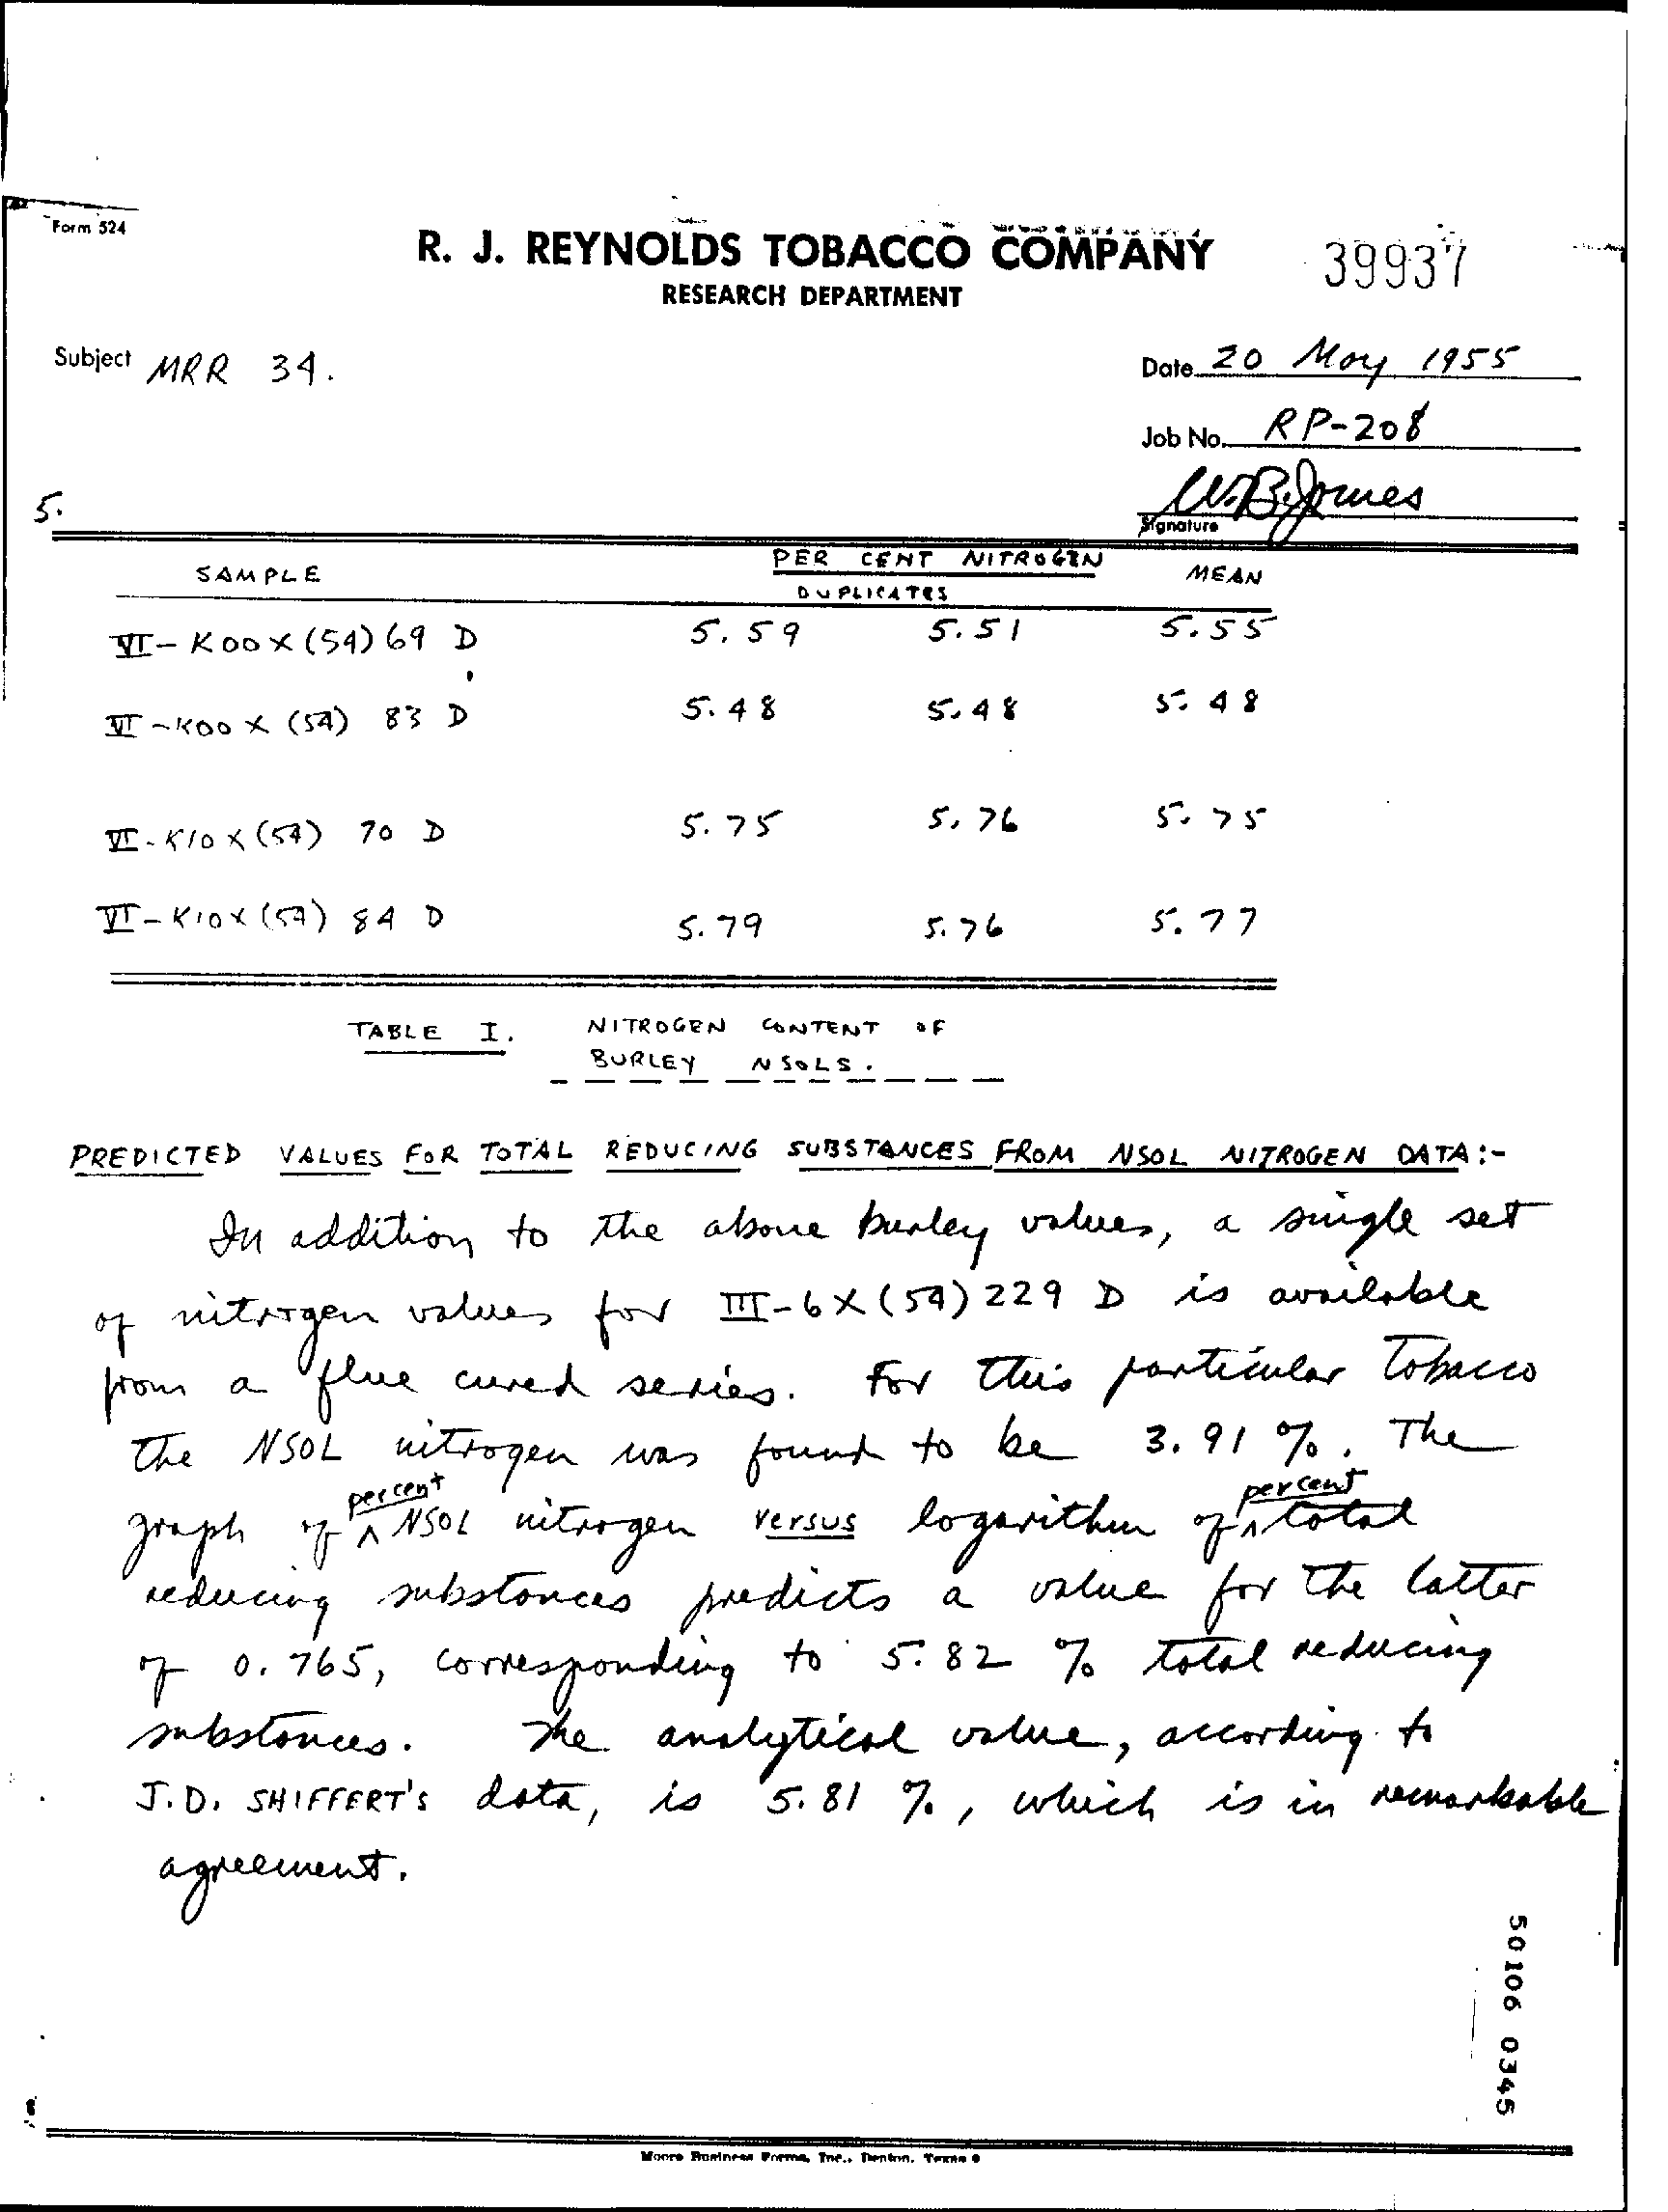 Form 524
R. J. REYNOLDS TOBACCO COMPANY
39937
RESEARCH DEPARTMENT
Subject MRR 34.
Date 20 May 1955
Job No. RP-208
W.B. Jones
Signature
5.
SAMPLE PER CENT NITROGEN MEAN
DUPLICATES
VI-K00X(54)69 D 5.59 5.51 5.55
VI-K00X(54) 83 D 5.48 5.48 5.48
VI-K10X(54) 70 D 5.75 5.76 5.75
VI-K10X(54) 84 D 5.79 5.76 5.77
TABLE I. NITROGEN CONTENT OF
BURLEY NSOLS.
PREDICTED VALUES FOR TOTAL REDUCING SUBSTANCES FROM NSOL NITROGEN DATA:-
In addition to the above burley values, a single set
of nitrogen values for III-6X(54)229 D is available
from a flue cured series. For this particular tobacco
the NSOL nitrogen was found to be 3.91 %. The
graph of percent NSOL nitrogen versus logarithm of percent total
reducing substances predicts a value for the latter
of 0.765, corresponding to 5.82 % total reducing
substances. The analytical value, according to
J.D. SHIFFERT'S data, is 5.81 %, which is in remarkable
agreement.
50106 0345
Moore Business Forms, Inc., Denton, Texas